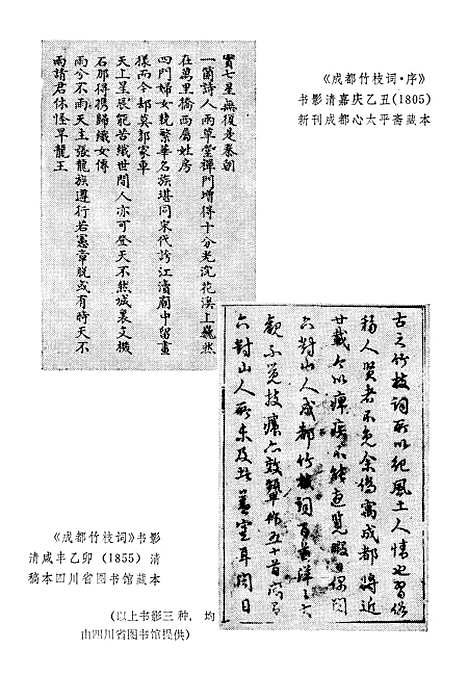 《成都竹枝词·序》
书影清嘉庆乙丑(1805)
新刊成都心太平斋藏本
實七星無復是秦朝
一箇詩人兩草堂禪門增得十分光浣花溪上巍然
在萬里橋西屬姓房
四門婦女競繁華名族堪同宋代誇江瀆廟中留畫
樣而今却莫郭家車
天上星辰能苦織世間人亦可登天不然城裏支機
石那得携歸織女傳
雨兮不雨天主張龍族遵行若憲章脱或有時天不
雨請君休怪旱龍王
古之竹枝詞所以紀風土人情也習俗
移人賢者不免余僑寓成都將近
廿載今以痺疾不能遊覽暇日偶閲
六對山人成都竹枝詞百首洋洋大
觀不覺技癢亦效顰作五十首
六對山人所未及
《成都竹枝词》书影
清咸丰乙卯（1855）清
稿本四川省图书馆藏本
(以上书影三种，均
由四川省图书馆提供)